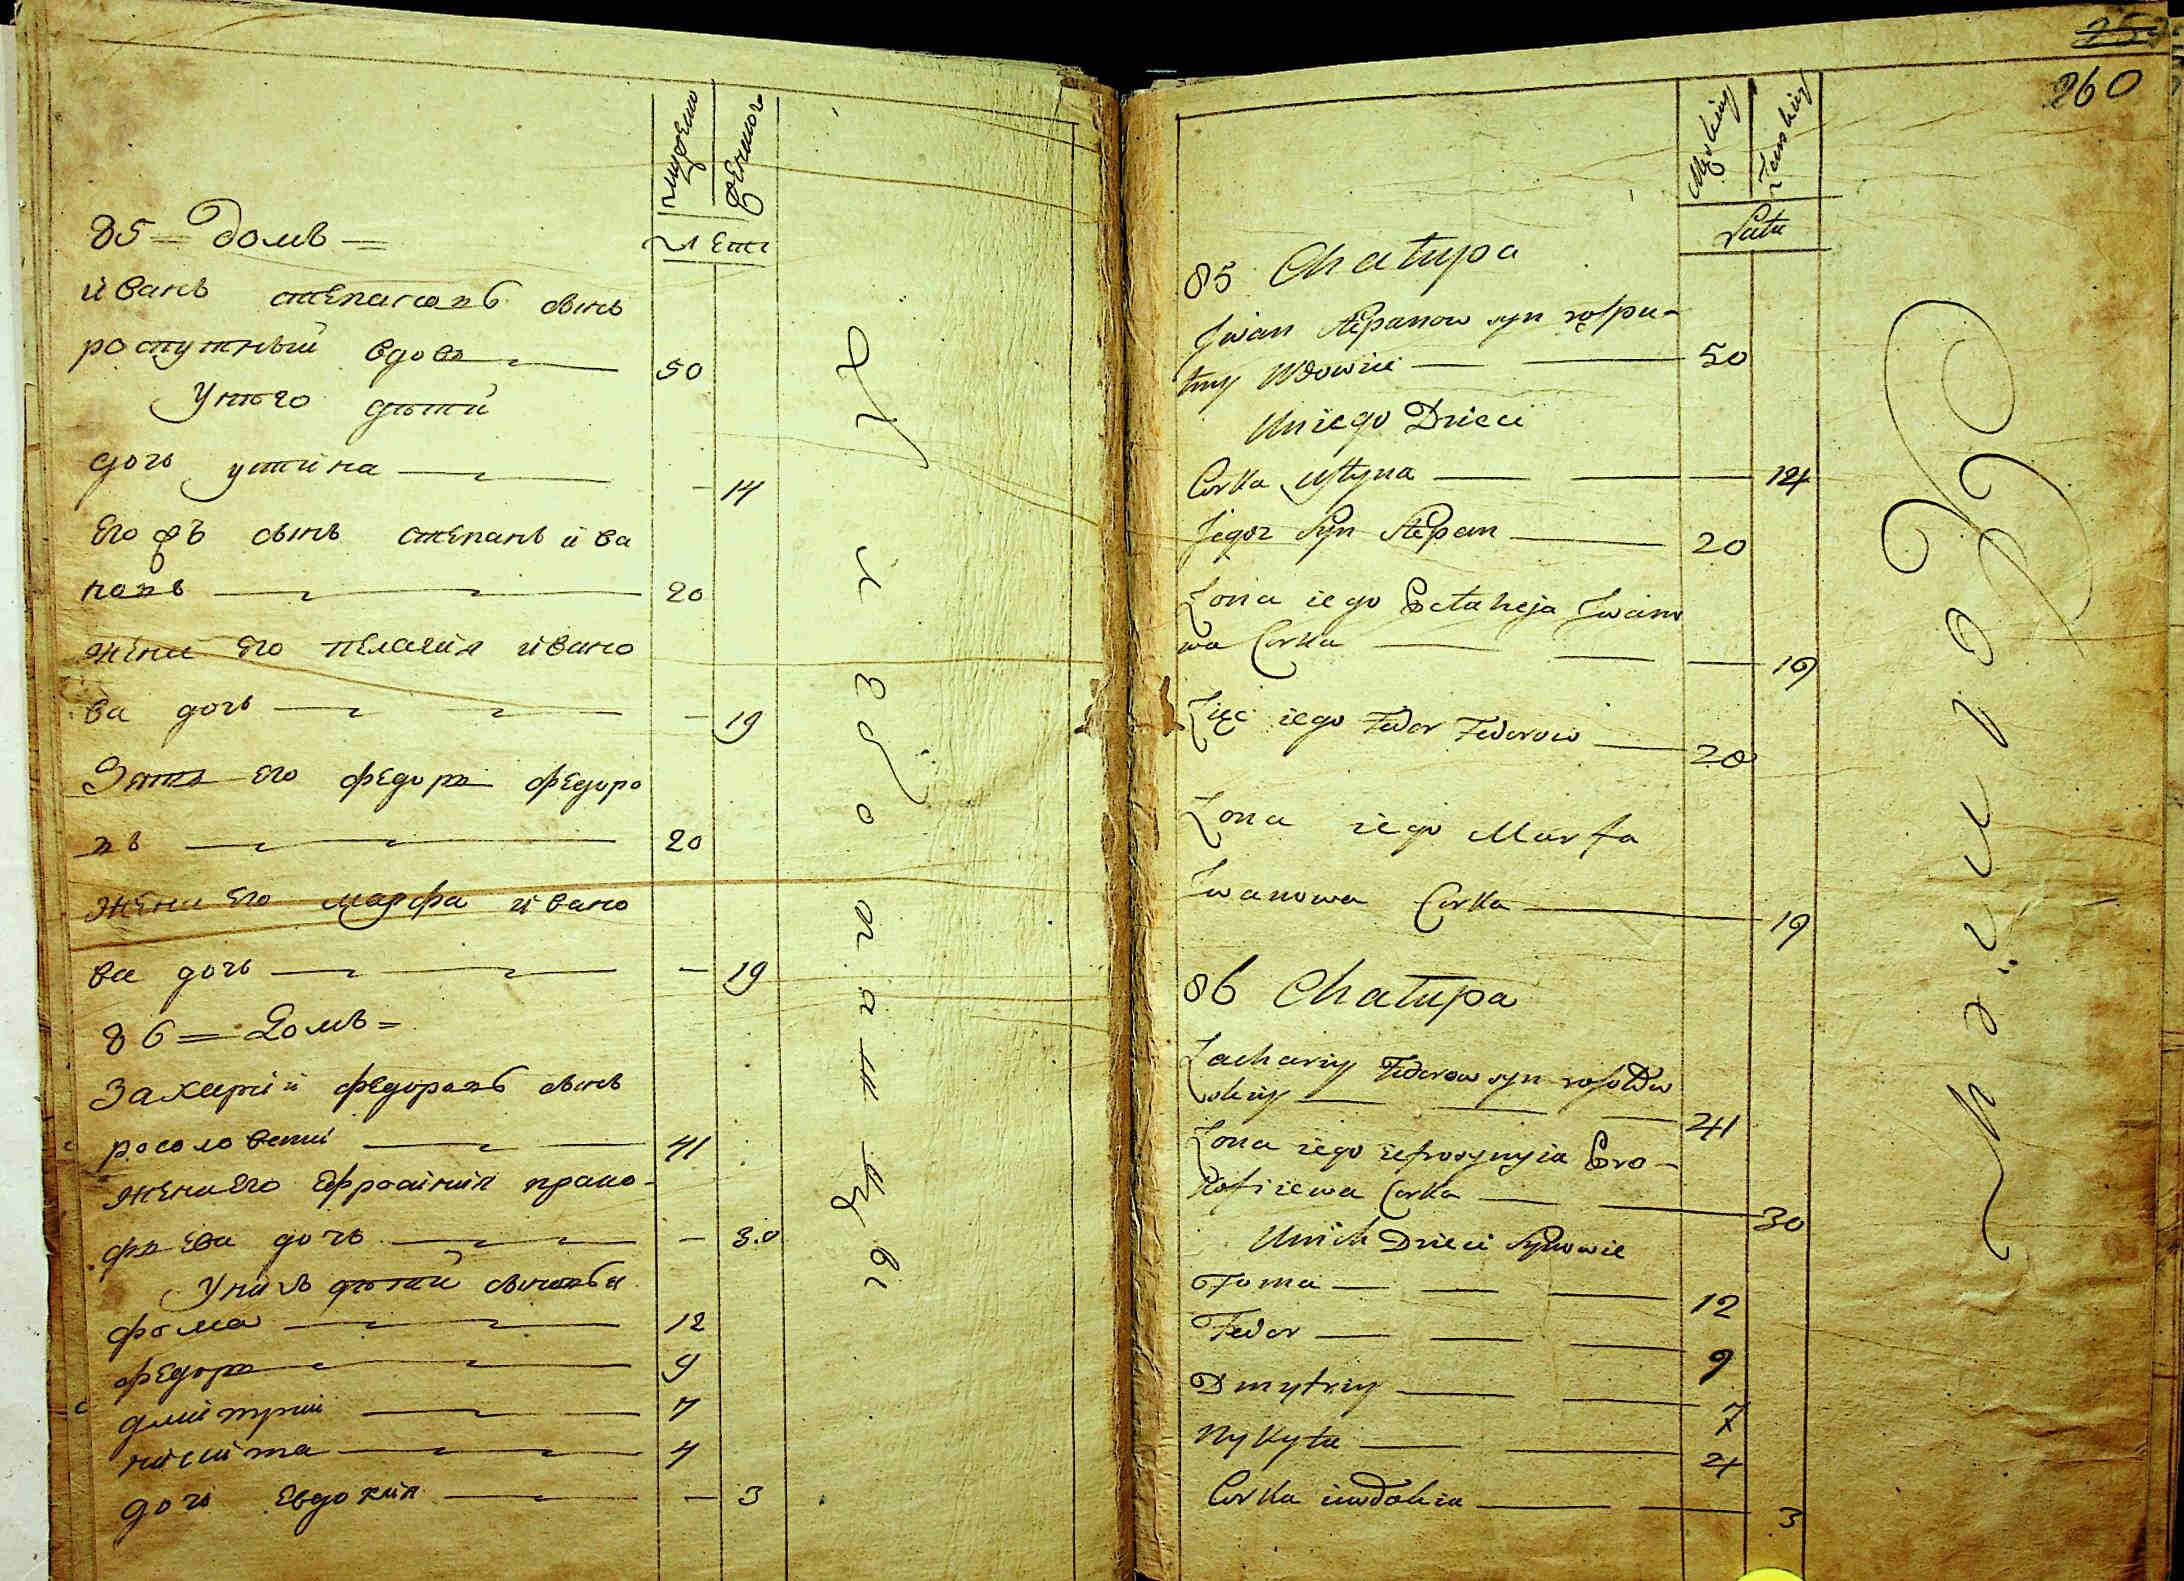 мужеска
женска
Лета
85 = Домъ =
Иванъ степановъ сынъ
роспутный вдовъ
50
Унего дѣти
дочь устина - 14
Егожъ сынъ степанъ ива
новъ 20
жена Его пелагия ивано
ва дочь - 19
Зять его федоръ федоро
въ 20
жена Его марфа ивано
ва дочь - 19
86 = Домъ =
Захарий федоровъ сынъ
росоловский 41
жена Его Ефросиния проко
фьева дочь - 30
Унихъ дѣти сыновья
фома 12
федоръ 9
дмитрий 7
никита 4
дочь Евдокия - 3
260
Męskiey
Żenskiey
Lata
85 Chatupa
Jwan Stepanow syn rospu-
tny Wdowiec 50
Uniego Dzieci
Corka Ustyna 14
Jegoz Syn Stepan 20
Zona iego Pelaheja Jwano
wa Corka 19
Zięc iego Fedor Fedorow 20
Zona iego Marfa
Jwanowa Corka 19
86 Chatupa
Zachariy Fedorow syn rosolow
skiy 41
Zona iego iefrosynyia Pro-
kofiiewa Corka 30
Unich Dzieci Synowie
Foma 12
Fedor 9
Dmytriy 7
Nykyta 4
Corka iewdokia 3